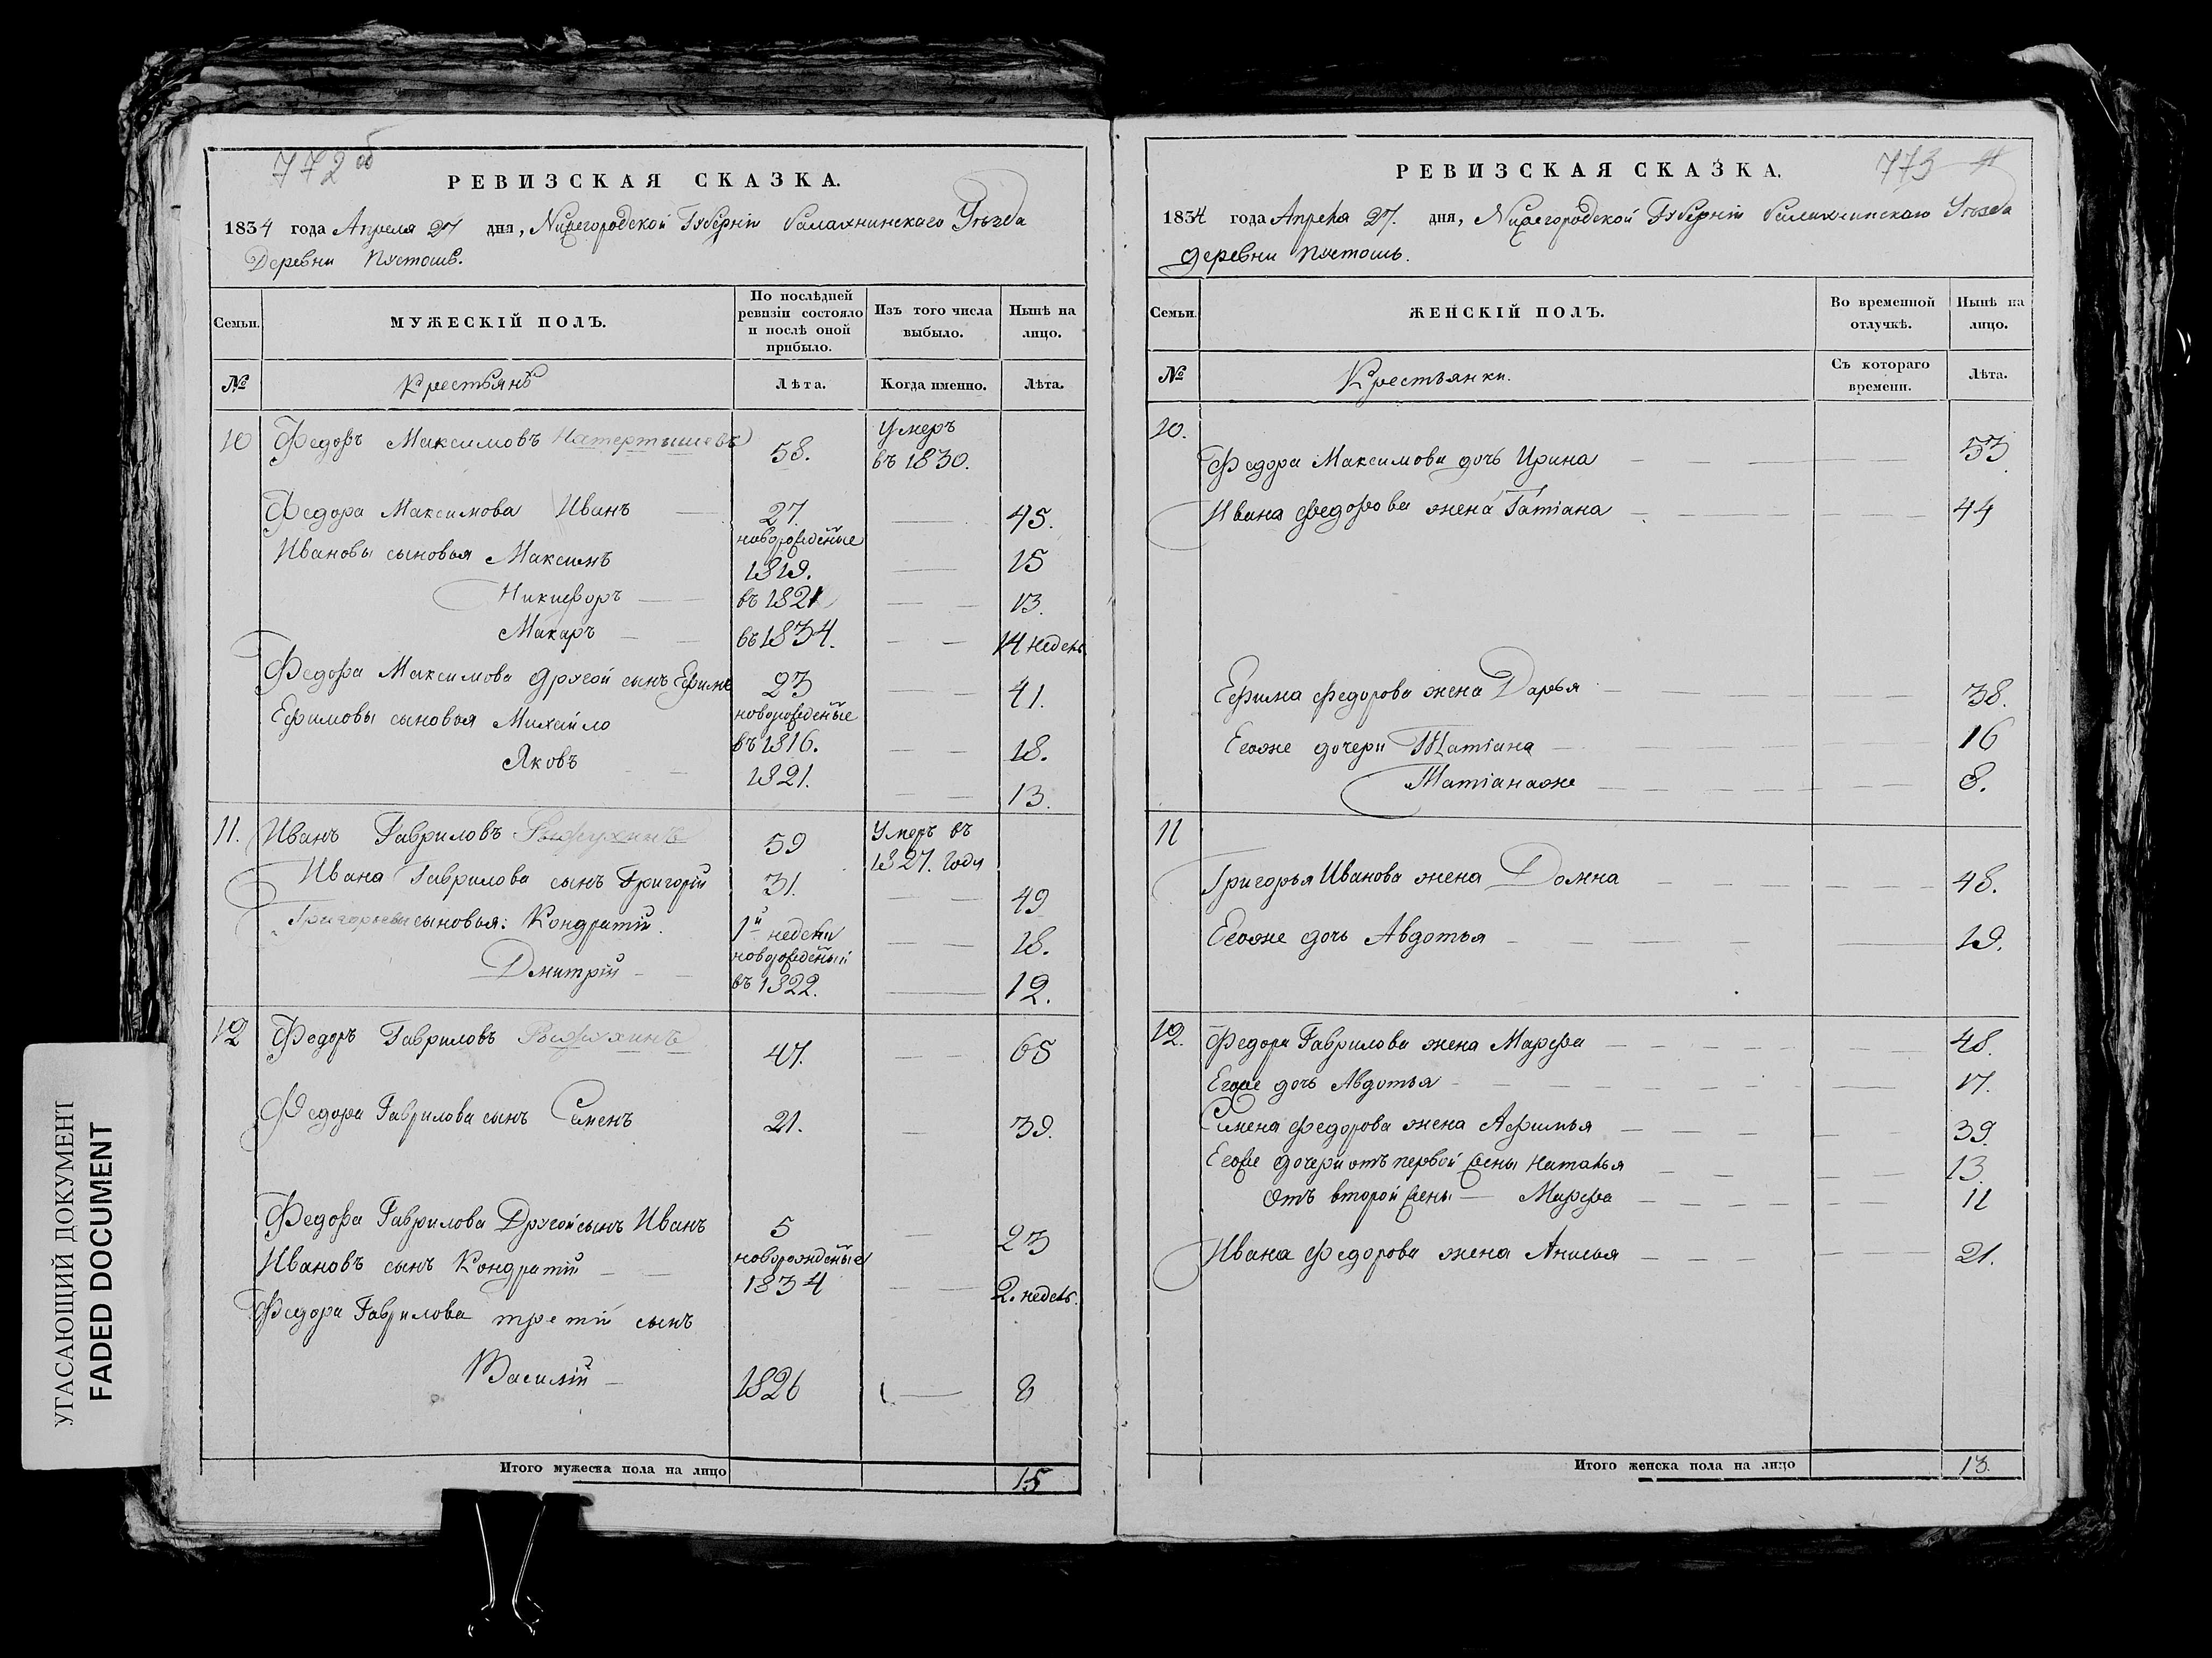 772 об
РЕВИЗСКАЯ СКАЗКА.
1834 года Апреля 27 дня, Нижегородской Губерніи Балахнинскаго Уѣзда
Деревни Пустошь.
Семьи.
МУЖЕСКІЙ ПОЛЪ.
По послѣдней ревизіи состояло и послѣ оной прибыло.
Изъ того числа выбыло.
Нынѣ на лицо.
№ Крестьянъ Лѣта. Когда именно. Лѣта.
10 Федоръ Максимовъ 58. Умеръ въ 1830.
Федора Максимова Иванъ 27. 45.
Ивановы сыновья Максимъ новорожденные 1819. 15
Никифоръ въ 1821 13.
Макаръ въ 1834. 14 недель
Федора Максимова другой сынъ Ефимъ 23 41.
Ефимовы сыновья Михайло новорожденные въ 1816. 18.
Яковъ 1821. 13.
11. Иванъ Гавриловъ 59 Умеръ въ 1827. Году
Ивана Гаврилова сынъ Григорій 31. 49
Григорьевы сыновья: Кондратій. 1й недели 18.
Дмитрій новорожденный въ 1822. 12.
12 Федоръ Гавриловъ 47. 65
Федора Гаврилова сынъ Семенъ 21. 39.
Федора Гаврилова Другой сынъ Иванъ 5 23
Ивановъ сынъ Кондратій новорожденные 1834 2. недель.
Федора Гаврилова третій сынъ
Василій 1826 8
Итого мужеска пола на лицо 15
773
РЕВИЗСКАЯ СКАЗКА.
1834 года Апреля 27. дня, Нижегородской Губерніи Балахнинскаго Уѣзда
деревни Пустошь.
Семьи.
ЖЕНСКІЙ ПОЛЪ.
Во временной отлучкѣ.
Нынѣ на лицо.
№ Крестьянки. Съ котораго времени. Лѣта.
10.
Федора Максимова дочь Ирина 53
Ивана Федорова жена Татіана 44
Ефима Федорова жена Дарья 38.
Егоже дочери Татіана 16
Татіанаже 8.
11
Григорья Иванова жена Домна 48.
Егоже дочь Авдотья 19.
12. Федора Гаврилова жена Марфа 48.
Егоже дочь Авдотья 17.
Симена Федорова жена Афимья 39.
Егоже дочери отъ первой жены Наталья 13.
Отъ второй жены Марфа 11
Ивана Федорова жена Анисья 21.
Итого женска пола на лицо 13.
УГАСАЮЩИЙ ДОКУМЕНТ
FADED DOCUMENT